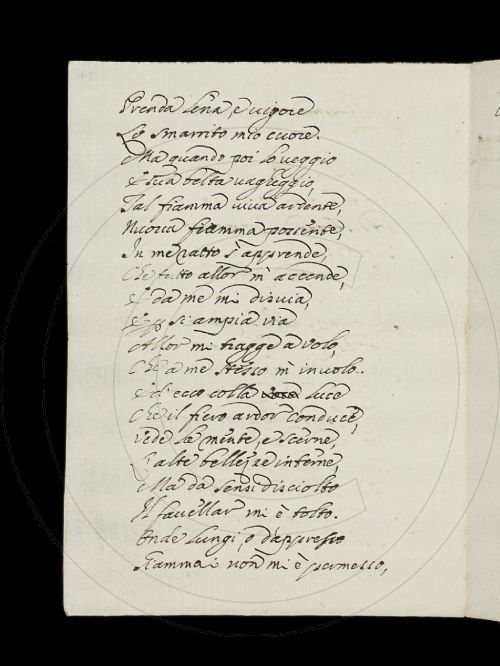 Prenda lena, e vigore
Lo smarrito mio cuore.
Ma quando poi lo veggio
E sua beltà vagheggio,
Tal fiamma viva ardente,
Nuova fiamma possente,
In me ratto s'apprende,
Che tutto allor m'accende,
E da me mi disvia,
E si ampia via
Allor mi tragge a volo,
Che a me stesso m'involo.
Ed ecco colla luce
Che il fiero ardor conduce,
Vede la mente, e scerne,
L'alte bellezze interne,
Ma da sensi disciolto
Il favellar mi è tolto.
Onde lungi, o d'appresso
Giammai non mi è permesso,